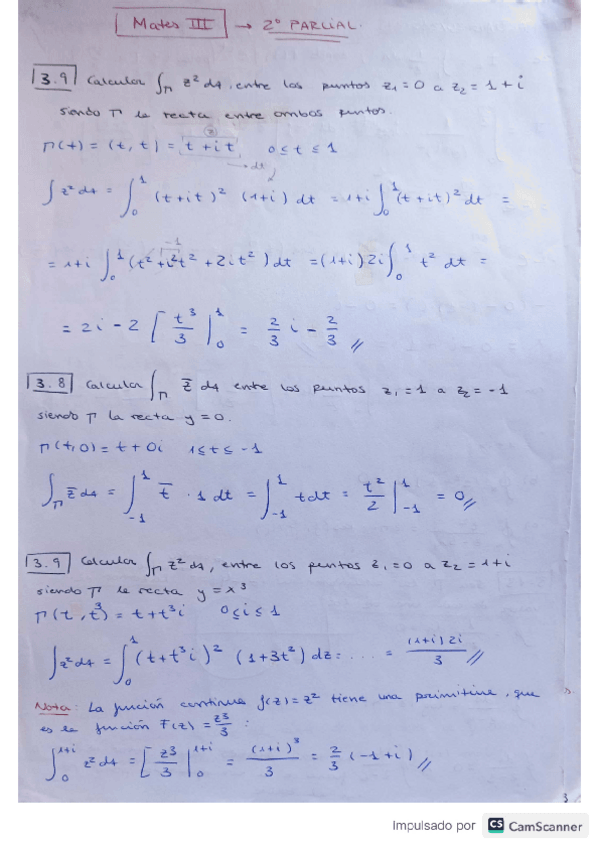 Mates III → 2º PARCIAL.
3.9 Calcular ∫Γ z² dz, entre los puntos z₁ = 0 a z₂ = 1 + i
siendo Γ la recta entre ambos puntos.
Γ(t) = (t, t) = t + i t 0 ≤ t ≤ 1
∫ z² dz = ∫₀¹ (t + it)² (1+i) dt = 1+i ∫₀¹ (t + it)² dt =
= 1+i ∫₀¹ (t² + i²t² + 2it²) dt = (1+i) 2i ∫₀¹ t² dt =
= 2i - 2 [t³/3 |₀¹ = 2/3 i - 2/3 //
3.8 Calcular ∫Γ z̄ dz entre los puntos z₁ = 1 a z₂ = -1
siendo Γ la recta y = 0.
Γ(t,0) = t + 0i 1 ≤ t ≤ -1
∫Γ z̄ dz = ∫₋₁¹ t̄ · 1 dt = ∫₋₁¹ t dt = t²/2 |₋₁¹ = 0 //
3.9 Calcular ∫Γ z² dz, entre los puntos z₁ = 0 a z₂ = 1 + i
siendo Γ la recta y = x³
Γ(t, t³) = t + t³i 0 ≤ i ≤ 1
∫ z² dz = ∫₀¹ (t + t³i)² (1 + 3t²) dz = .... = (1+i) 2i / 3 //
Nota: La función continua f(z) = z² tiene una primitiva, que
es la función F(z) = z³/3 :
∫₀¹⁺ⁱ z² dz = [z³/3 |₀¹⁺ⁱ = (1+i)³/3 = 2/3 (-1 + i) //
3
Impulsado por CS CamScanner